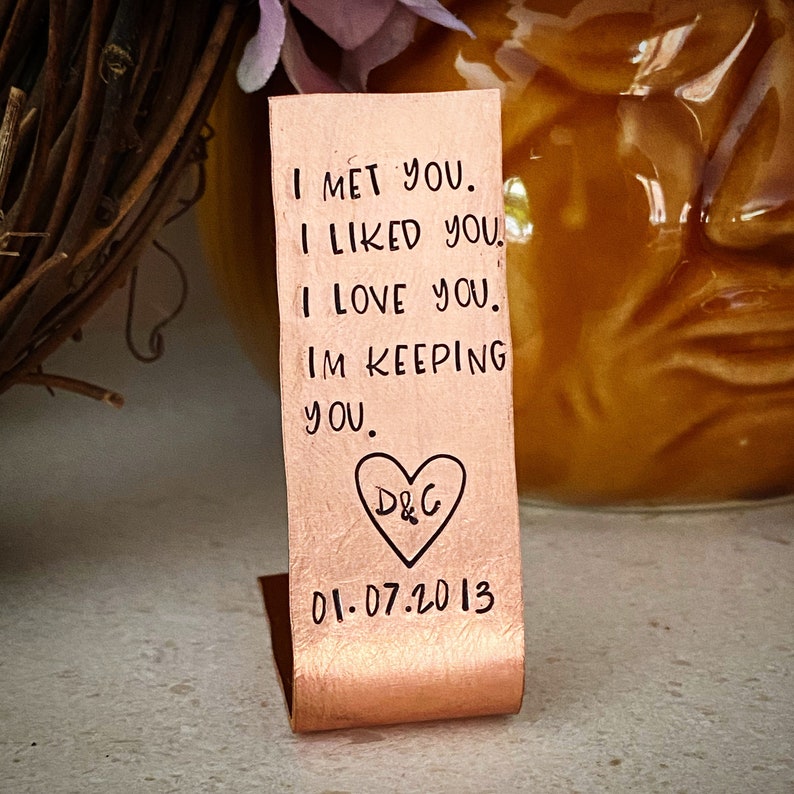 I MET YOU.
I LIKED YOU.
I LOVE YOU.
IM KEEPING
YOU.
D&C
01.07.2013